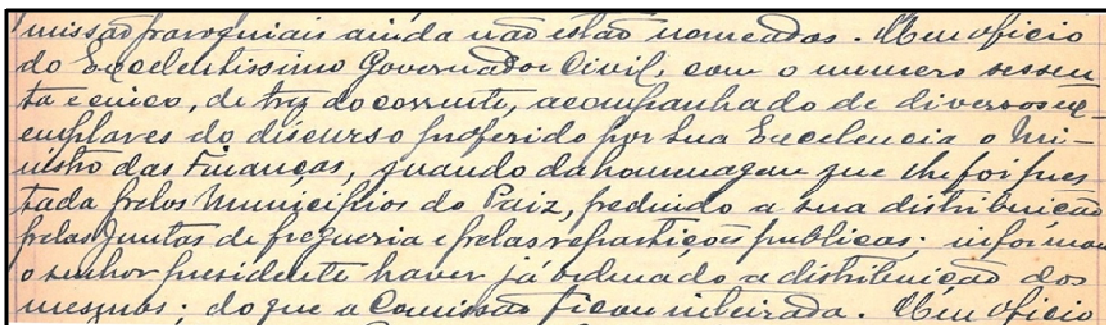 missão paroquiais ainda não estão nomeados. Um oficio
do Excelentissimo Governador Civil, com o numero sessen
ta e cinco, de trez do corrente, acompanhado de diversos ex-
emplares do discurso proferido por Sua Excelencia o Mi-
nistro das Finanças, quando da homenagem que lhe foi pres
tada pelos Municipios do Paiz, pedindo a sua distribuição
pelas Juntas de freguesia e pelas repartições publicas; informou
o senhor presidente haver já ordenado a distribuição dos
mesmos; do que a Comissão ficou inteirada. Um oficio